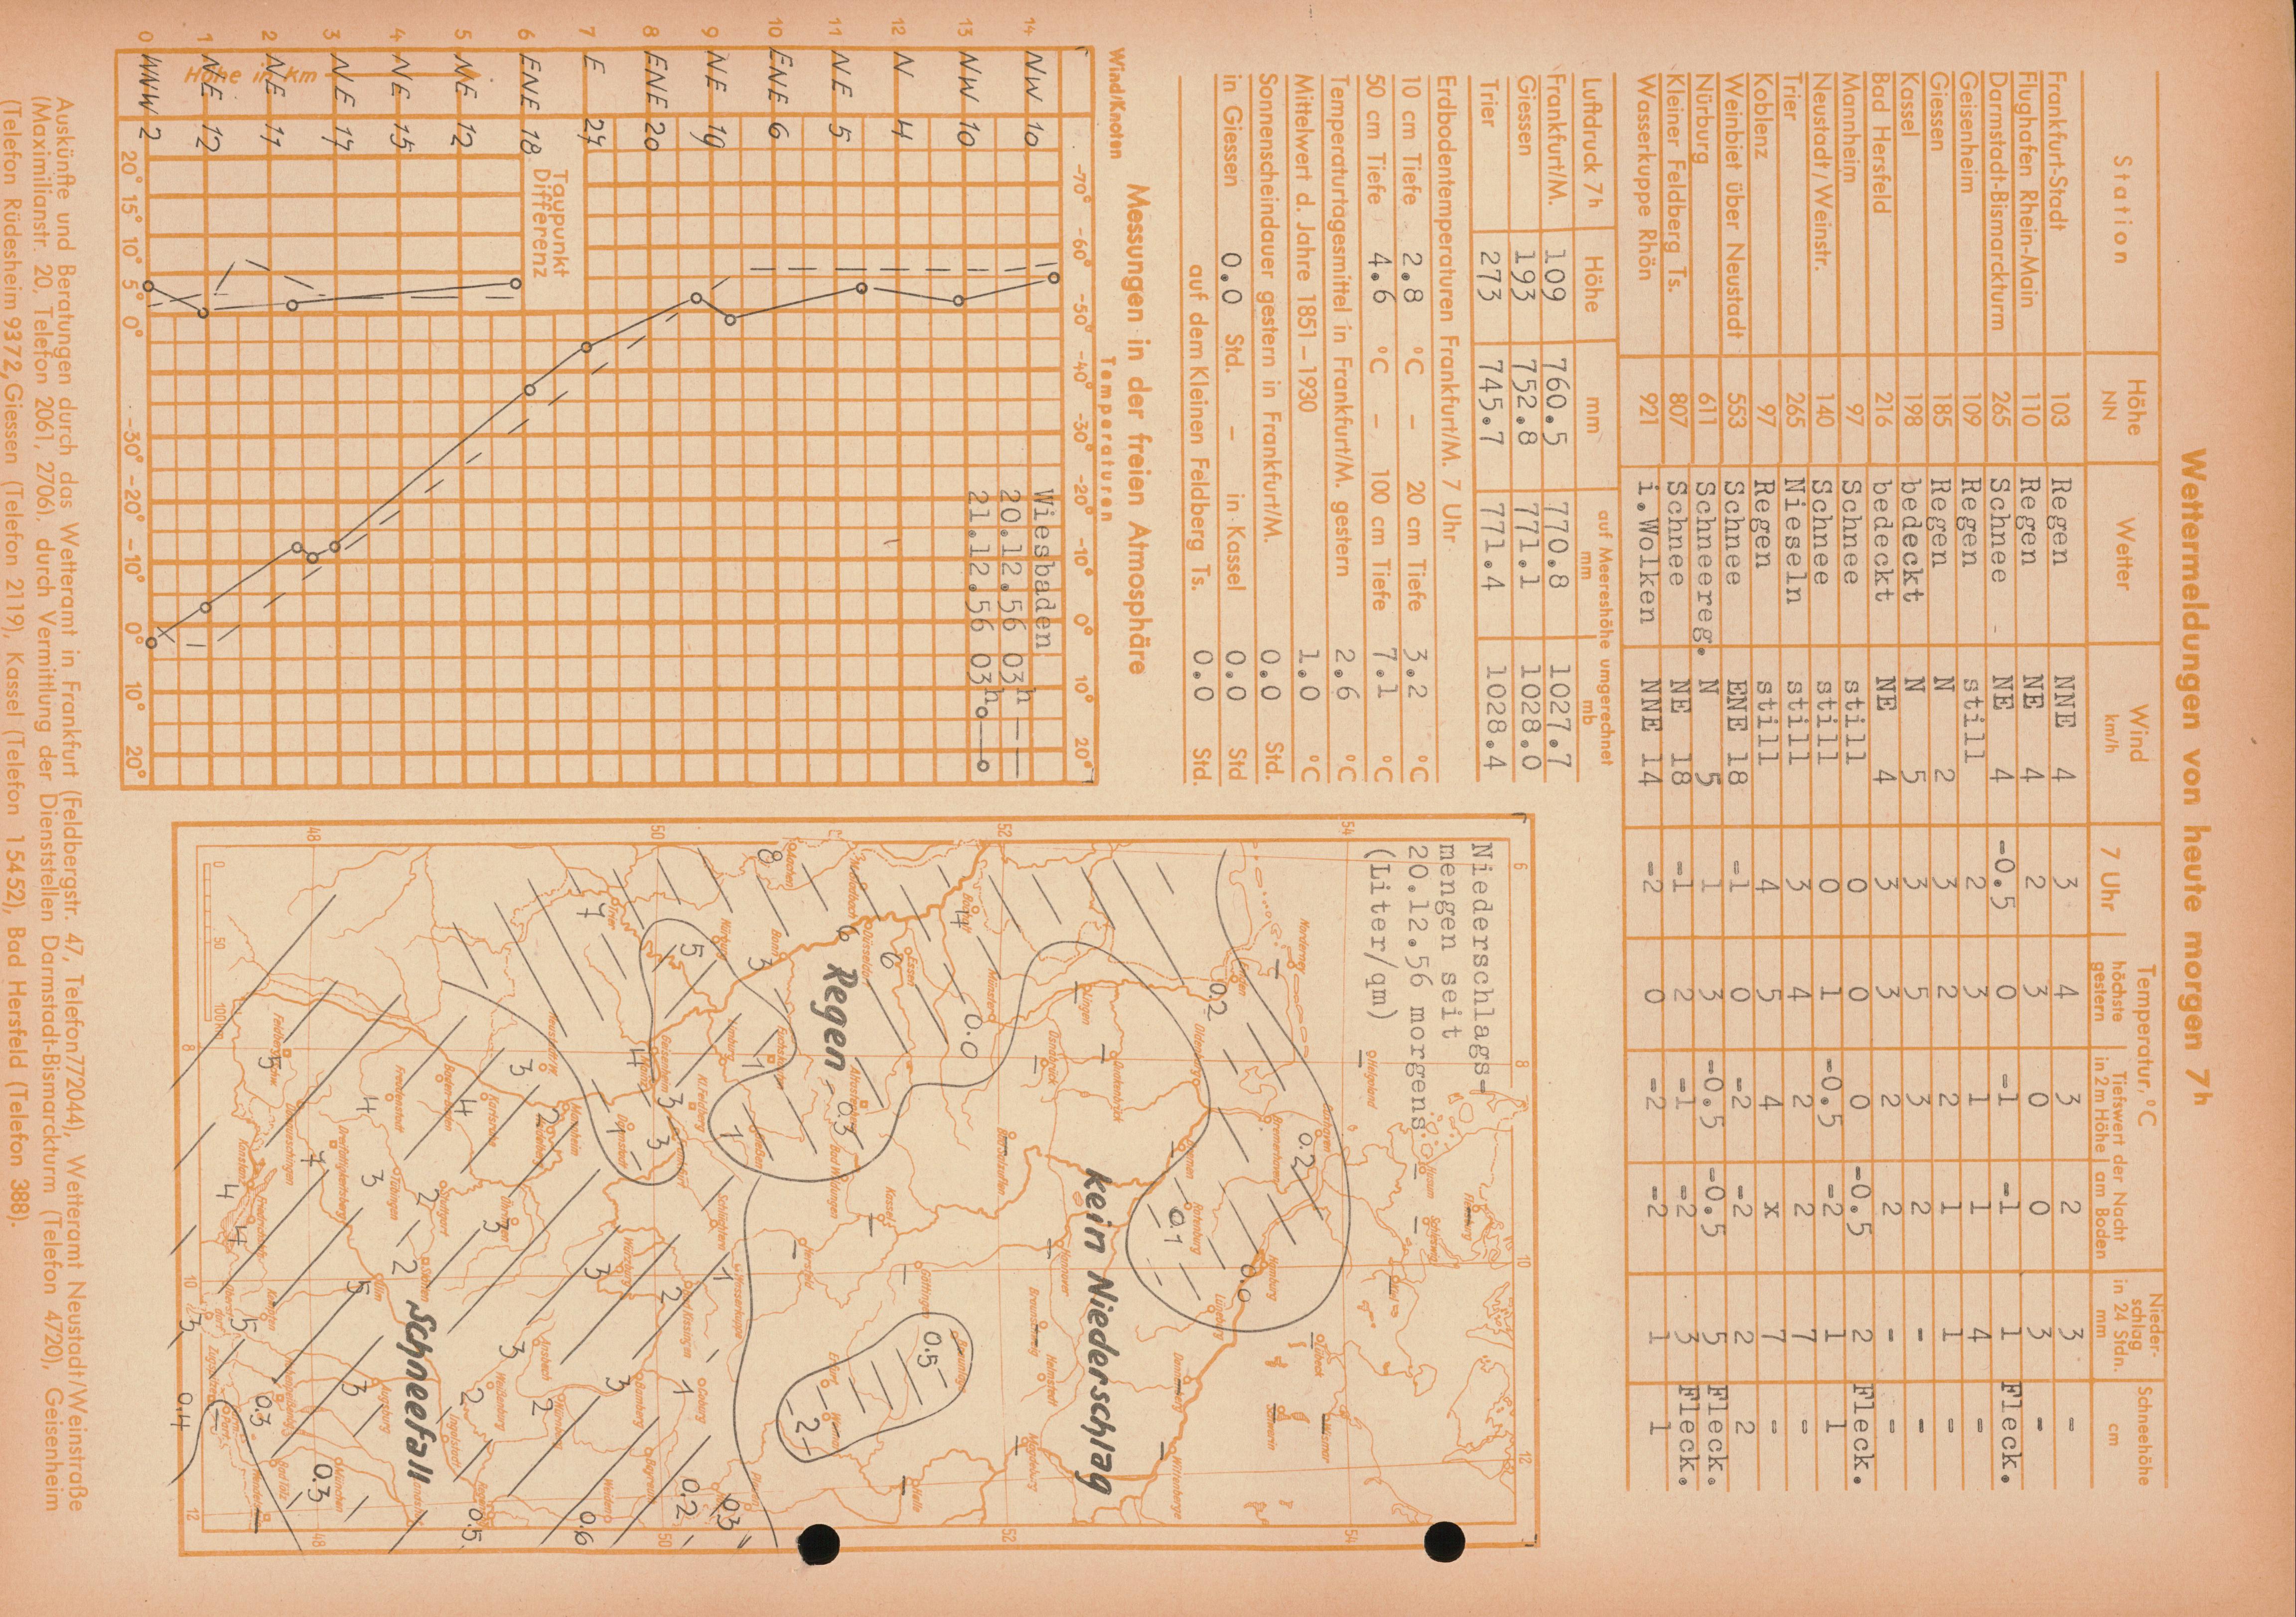 Wettermeldungen von heute morgen 7h
Station Höhe NN Wetter Wind km/h Temperatur, °C Nieder-schlag in 24 Stdn. mm Schneehöhe cm
7 Uhr höchste gestern Tiefstwert der Nacht in 2m Höhe am Boden
Frankfurt-Stadt 103 Regen NNE 4 3 4 3 2 3 -
Flughafen Rhein-Main 110 Regen NE 4 2 3 0 0 3 -
Darmstadt-Bismarckturm 265 Schnee NE 4 -0.5 0 -1 -1 1 Fleck.
Geisenheim 109 Regen still 2 3 1 1 4 -
Giessen 185 Regen N 2 3 2 2 1 1 -
Kassel 198 bedeckt N 5 3 5 3 2 - -
Bad Hersfeld 216 bedeckt NE 4 3 3 2 2 - -
Mannheim 97 Schnee still 0 0 0 -0.5 2 Fleck.
Neustadt/Weinstr. 140 Schnee still 0 1 -0.5 -2 1 1
Trier 265 Nieseln still 3 4 2 2 7 -
Koblenz 97 Regen still 4 5 4 x 7 -
Weinbiet über Neustadt 553 Schnee ENE 18 -1 0 -2 -2 2 2
Nürburg 611 Schneereg. N 5 1 3 -0.5 -0.5 5 Fleck.
Kleiner Feldberg Ts. 807 Schnee NE 18 -1 2 -1 -2 3 Fleck.
Wasserkuppe Rhön 921 i.Wolken NNE 14 -2 0 -2 -2 1 1
Luftdruck 7h Höhe mm auf Meereshöhe umgerechnet
mm mb
Frankfurt/M. 109 760.5 770.8 1027.7
Giessen 193 752.8 771.1 1028.0
Trier 273 745.7 771.4 1028.4
Erdbodentemperaturen Frankfurt/M. 7 Uhr
10 cm Tiefe 2.8 °C – 20 cm Tiefe 3.2 °C
50 cm Tiefe 4.6 °C – 100 cm Tiefe 7.1 °C
Temperaturtagesmittel in Frankfurt/M. gestern 2.6 °C
Mittelwert d. Jahre 1851–1930 1.0 °C
Sonnenscheindauer gestern in Frankfurt/M. 0.0 Std.
in Giessen 0.0 Std. – in Kassel 0.0 Std
auf dem Kleinen Feldberg Ts. 0.0 Std.
Messungen in der freien Atmosphäre
Wind/Knoten Temperaturen
-70° -60° -50° -40° -30° -20° -10° 0° 10° 20°
14 NW 10
13 NW 10
12 N 4
11 NE 5
10 ENE 6
9 NE 19
8 ENE 20
7 E 24
6 ENE 18
5 NE 12
4 NE 15
3 NE 17
2 NE 11
1 NE 12
0 WNW 2
Höhe in km
Taupunkt
Differenz
Wiesbaden
20.12.56 03h
21.12.56 03h
20° 15° 10° 5° 0° -30° -20° -10° 0° 10° 20°
Niederschlags-
mengen seit
20.12.56 morgens
(Liter/qm)
Regen
kein Niederschlag
Schneefall
6 8 10 12
54
52
50
48
0 50 100
Norderney
Emden
Helgoland
Cuxhaven
Bremerhaven
Oldenburg
Bremen
Hamburg
Lüneburg
Lübeck
Schwerin
Wismar
Wittenberge
Lingen
Osnabrück
Münster
Hannover
Braunschweig
Magdeburg
Göttingen
Kassel
Halle
Essen
Düsseldorf
Aachen
Bonn
Nürburg
Trier
Geisenheim
Giessen
Hersfeld
Wasserkuppe
Erfurt
Weimar
Coburg
Bamberg
Bayreuth
Weiden
Würzburg
Nürnberg
Ansbach
Mannheim
Karlsruhe
Stuttgart
Tübingen
Freudenstadt
Ulm
Augsburg
München
Konstanz
Kempten
0.2
0.2
0.1
0.0
0.0
0.3
0.5
2
0.3
0.2
0.6
0.5
0.3
0.3
0.4
Auskünfte und Beratungen durch das Wetteramt in Frankfurt (Feldbergstr. 47, Telefon 772044), Wetteramt Neustadt/Weinstraße
(Maximilianstr. 20, Telefon 2061, 2706), durch Vermittlung der Dienststellen Darmstadt-Bismarckturm (Telefon 4720), Geisenheim
(Telefon Rüdesheim 9372, Giessen (Telefon 2119), Kassel (Telefon 15452), Bad Hersfeld (Telefon 388).